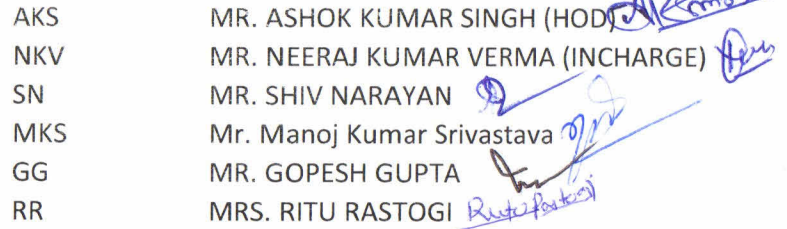 AKS MR. ASHOK KUMAR SINGH (HOD)
NKV MR. NEERAJ KUMAR VERMA (INCHARGE)
SN MR. SHIV NARAYAN
MKS Mr. Manoj Kumar Srivastava
GG MR. GOPESH GUPTA
RR MRS. RITU RASTOGI Ritu Rastogi